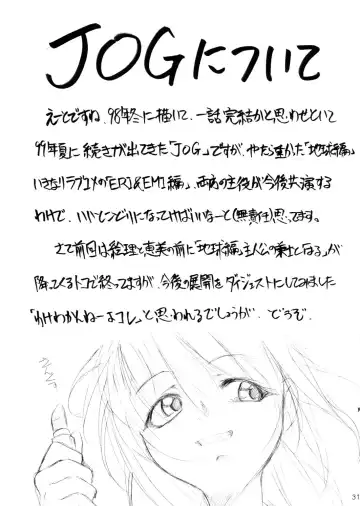 JOGについて
えーとですね、98年冬に描いて、一話完結かと思わせといて
99年夏に続きが出てきた「JOG」ですが、やたら重かった「地球編」
いきなりラブコメの「ERI&EMI編」、両方の主役が今後共演する
わけで、いいトコどりになってけばいいなーと(無責任)思ってます。
さて前回は絵理と恵美の前に「地球編」主人公の乗士となる」が
降ってくるトコで終ってますが、今後の展開をダイジェストにしてみました
「わけわかんねーよコレ」と思われるでしょうが、どうぞ.
31